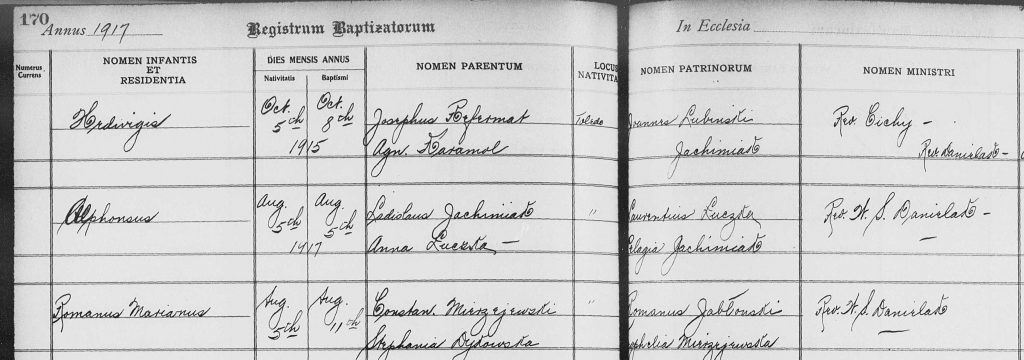 170
Annus 1917 Registrum Baptizatorum In Ecclesia
Numerus Currens
NOMEN INFANTIS ET RESIDENTIA
DIES MENSIS ANNUS
Nativitatis Baptismi
NOMEN PARENTUM
LOCUS NATIVITA
NOMEN PATRINORUM
NOMEN MINISTRI
Hedivigis Oct. 5th Oct. 8th Josephus Refermat Toledo Joannes Lubinski Rev. Cichy –
1915 Agn. Karamol Jachimiak Rev. Danielak –
Alphonsus Aug. 5th Aug. 5th Ladislaus Jachimiak " Laurentius Luczka Rev. W. S. Danielak –
1917 Anna Luczka – elagia Jachimiak
Romanus Marianus Aug. 5th Aug. 11th Constan. Mierzejewski " Romanus Jabłonski Rev. W. S. Danielak
Stephania Dykowska ophelia Mierzejewska